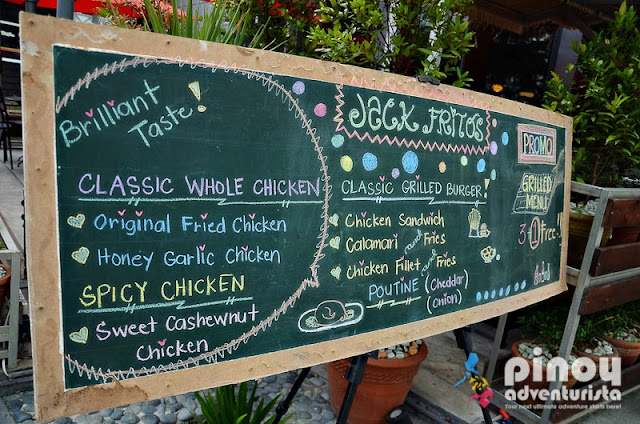 Brilliant
Taste!
CLASSIC WHOLE CHICKEN
Original Fried Chicken
Honey Garlic Chicken
SPICY CHICKEN
Sweet Cashewnut
Chicken
JACK FRITOS
CLASSIC GRILLED BURGER!
Chicken Sandwich
Calamari round Fries
Chicken Fillet round Fries
POUTINE (Cheddar)
(onion)
PROMO
GRILLED
MENU
3 1 free!!
pinoy
adventurista
Your next ultimate adventure starts here!